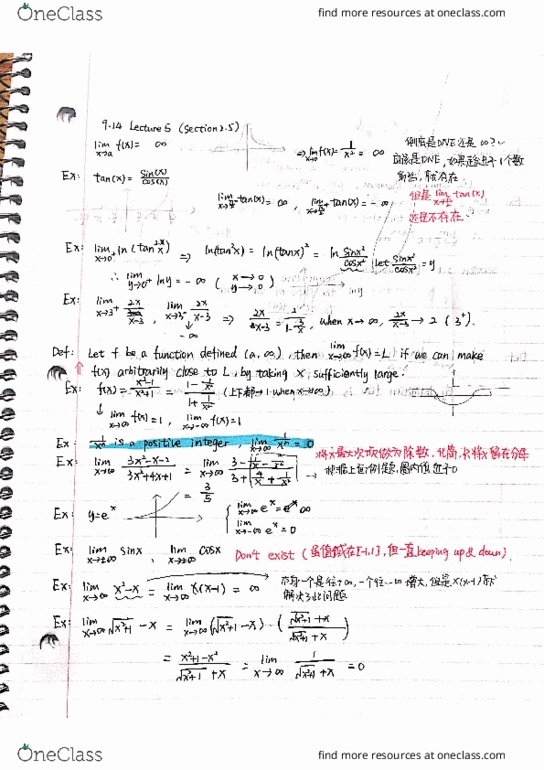 OneClass find more resources at oneclass.com
9.14 Lecture 5 (Section 2.5)
lim x→a f(x) = ∞ ⇒ lim x→0 f(x) = 1/x² = ∞
Ex: tan(x) = sin(x)/cos(x)
tan(x) = ∞, tan(x) = -∞
但是 lim tan(x)
还是不存在.
Ex: lim x→0⁺ ln(tan²x) ⇒ ln(tan²x) = ln(tanx)² = ln sinx²/cosx² let sinx²/cosx² = y
∴ lim y→0⁺ lny = -∞ (x→0 y→0)
Ex: lim x→3⁺ 2x/x-3, lim x→3⁻ 2x/x-3 ⇒ 2x/x-3 = 2/1-3/x, when x→∞, 2x/x-3 → 2 (3⁺).
-∞
Def: Let f be a function defined (a, ∞), then lim x→∞ f(x) = L if we can make
f(x) arbitrarily close to L, by taking x, sufficiently large.
Ex: f(x) = x²-1/x²+1 = 1-1/x²/1+1/x² (上下都→1 when x→∞)
↓ lim x→∞ f(x) = 1, lim f(x) = 1
Ex: 1/xⁿ is a positive integer, lim x→∞ 1/xⁿ = 0
Ex: lim x→∞ 3x²-x-2/3x²+4x+1 = lim x→∞
= 3/5
Ex: y = eˣ lim x→∞ eˣ = ∞
lim x→-∞ eˣ = 0
Ex: lim x→±∞ sinx, lim x→±∞ cosx Don't exist (虽值域在[-1,1], 但一直keeping up & down).
Ex: lim x→∞ x²-x = lim x→∞ x(x-1) = ∞
解决了此问题
Ex: lim x→∞ √x²+1 - x = lim x→∞ (√x²+1 - x) · (√x²+1 + x/√x²+1 + x)
= x²+1-x²/√x²+1 + x = lim x→∞ 1/√x²+1 + x = 0
OneClass find more resources at oneclass.com